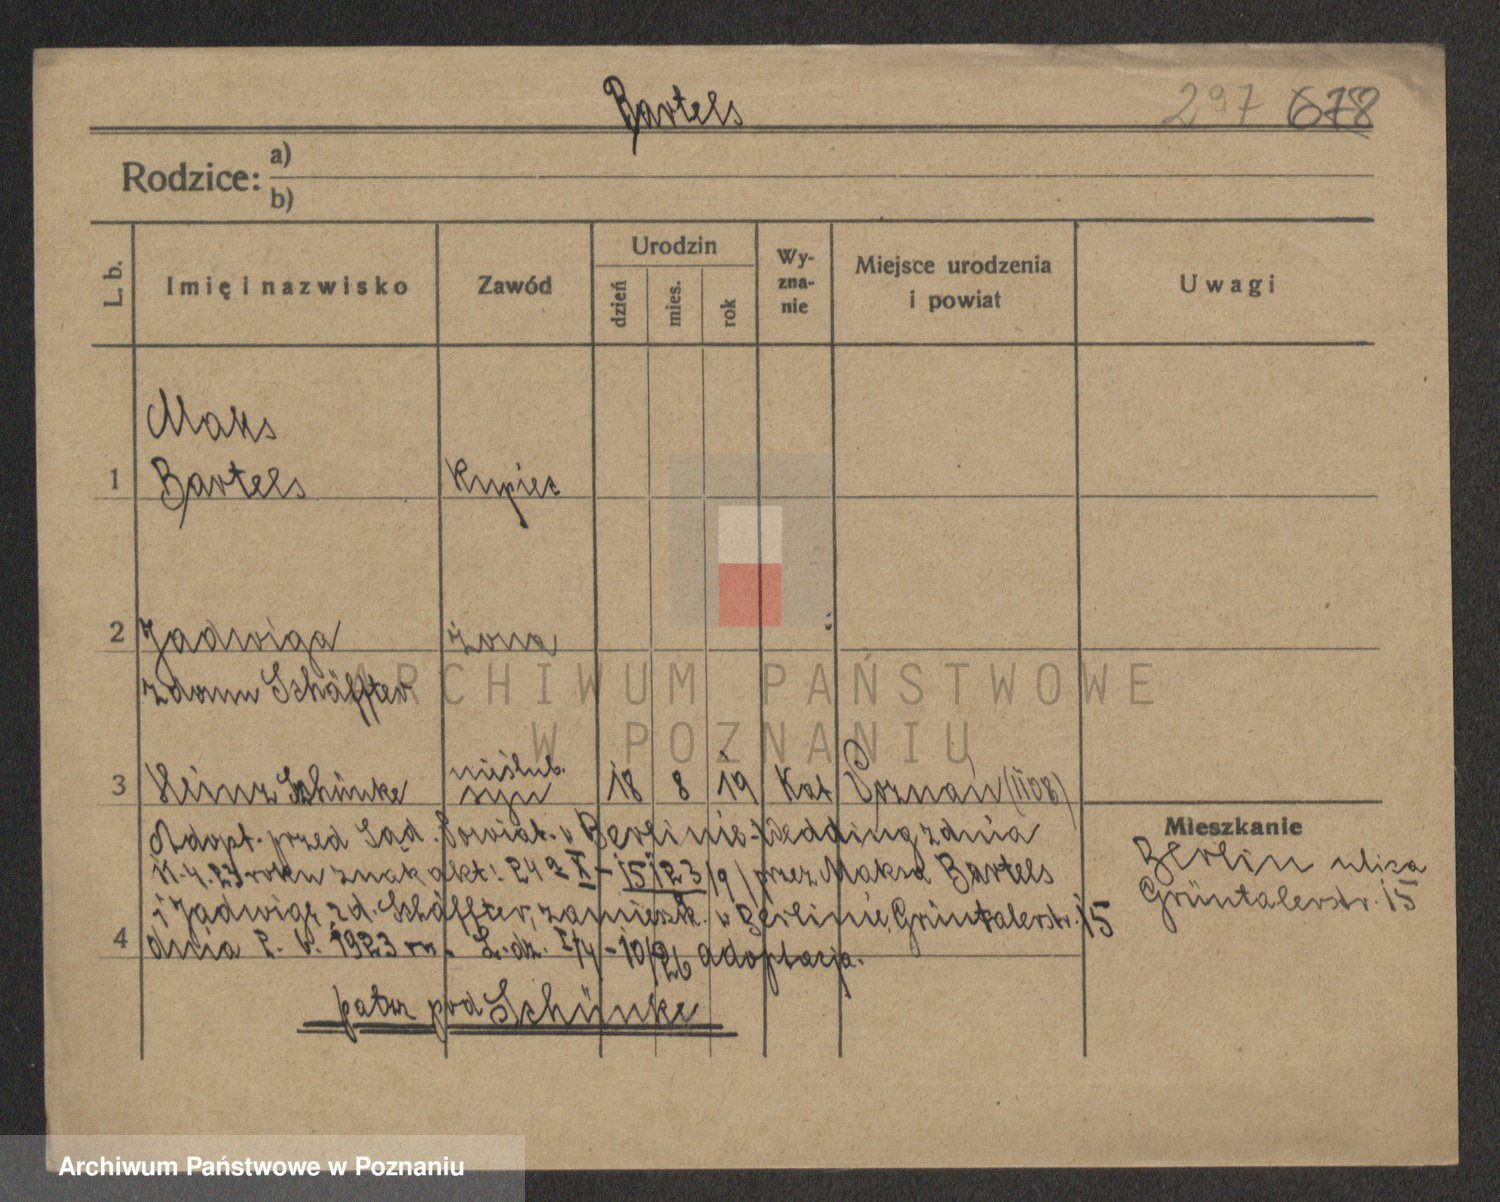 Bartels
297 678
Rodzice:
a)
b)
L. b.
Imię i nazwisko
Zawód
Urodzin
dzień
mies.
rok
Wy-
zna-
nie
Miejsce urodzenia
i powiat
Uwagi
Maks
1 Bartels Kupiec
2 Jadwiga żona
zdomu Schäffter
nieślub.
3 Heinz Schünke syn 18 8 19 Kat Poznań (1108)
Adopt. przed Sąd. Powiat. w Berlinie-Wedding z dnia
11.4.23 roku znak akt: 24 a X - 15123/9/ przez Maksa Bartels
i Jadwigę zd. Schäffter, zamieszk. w Berlinie, Grüntalerstr. 15
4 dnia 2. V. 1923 r. L. dz. I/4-10/26 adoptacja.
patrz pod Schünke
Mieszkanie
Berlin ulica
Grüntalerstr. 15
ARCHIWUM PAŃSTWOWE
W POZNANIU
Archiwum Państwowe w Poznaniu